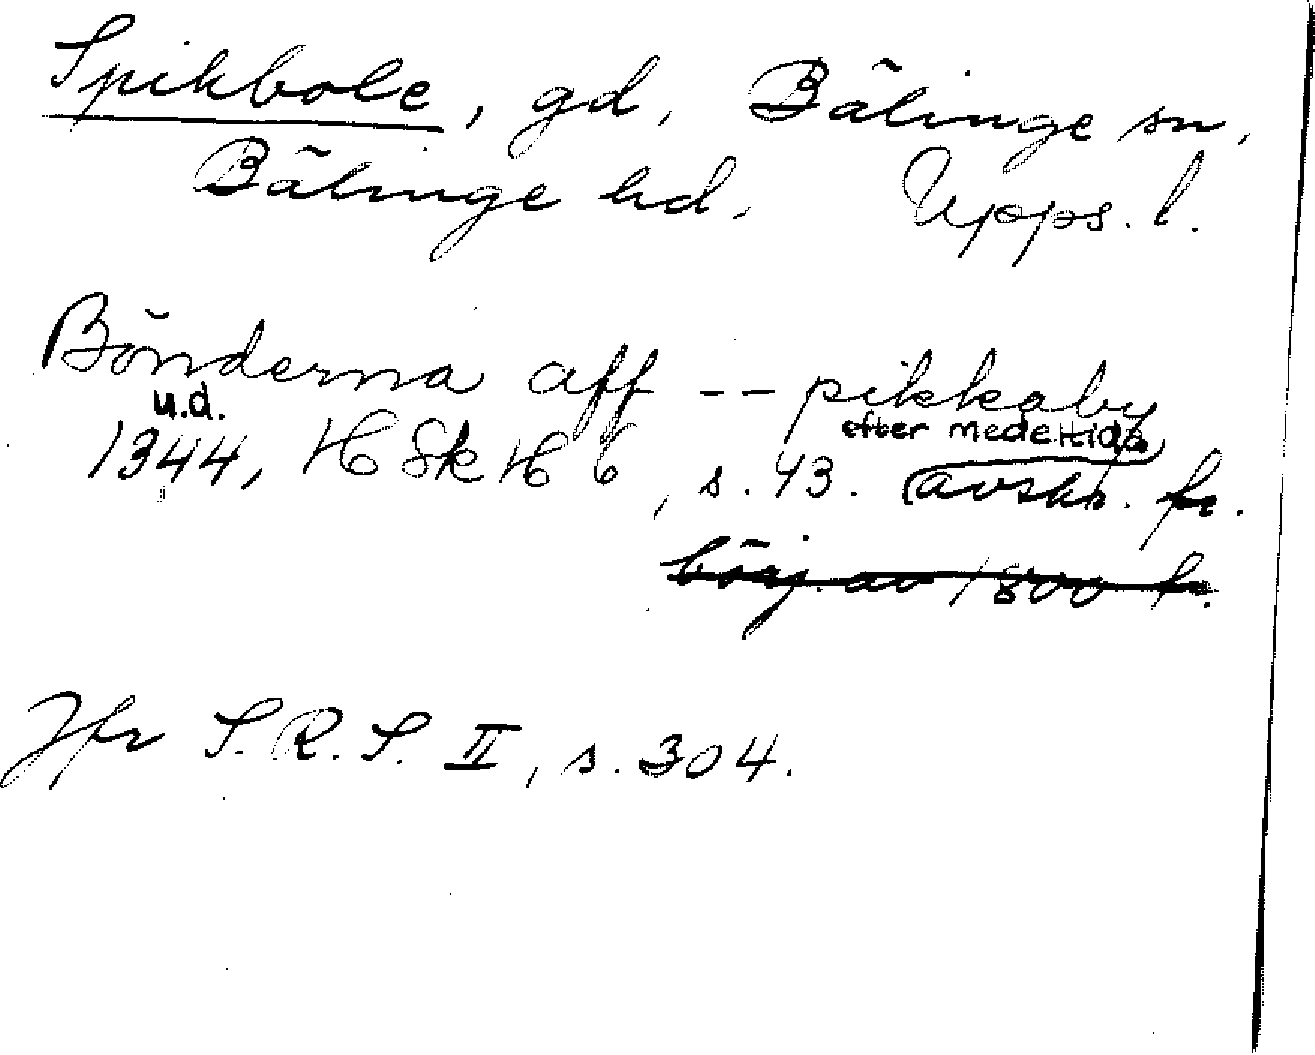 Spikbole, gd, Bälinge sn,
Bälinge hd. Upps. l.
Bönderna aff -- pikkaby
u.d.
efter medeltida
1344, HSkH 6, s. 43. (avskr. fr.
börj. av 1800 t.
Jfr S.R.S. II, s. 304.